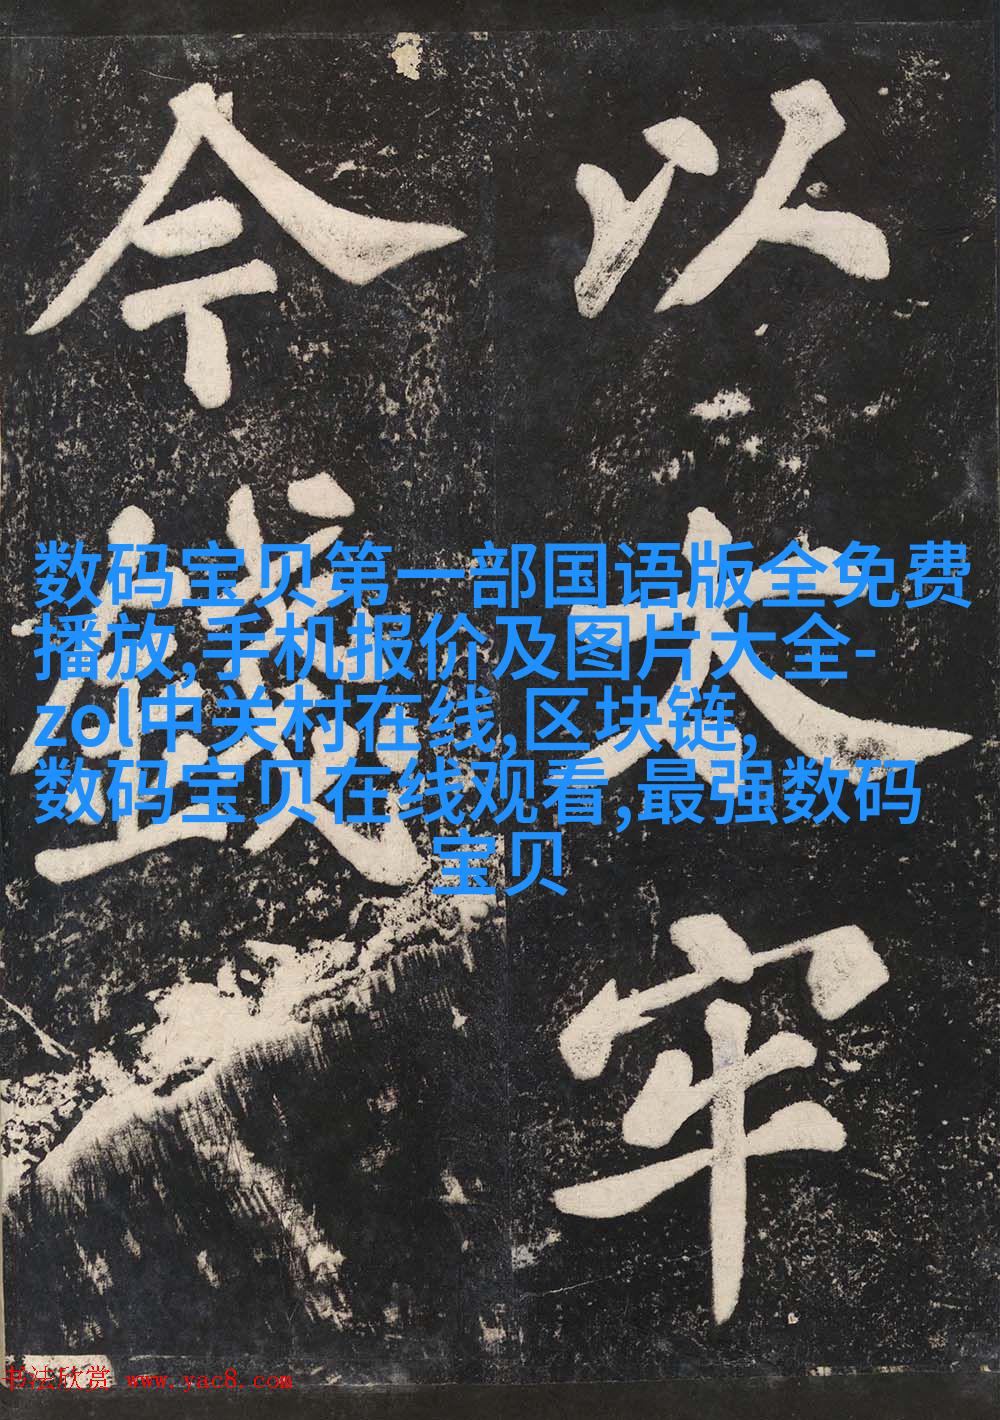 以大牢
今
数码宝贝第一部国语版全免费
播放,手机报价及图片大全-
zol中关村在线,区块链,
数码宝贝在线观看,最强数码
宝贝
书法欣赏 www.yac8.com